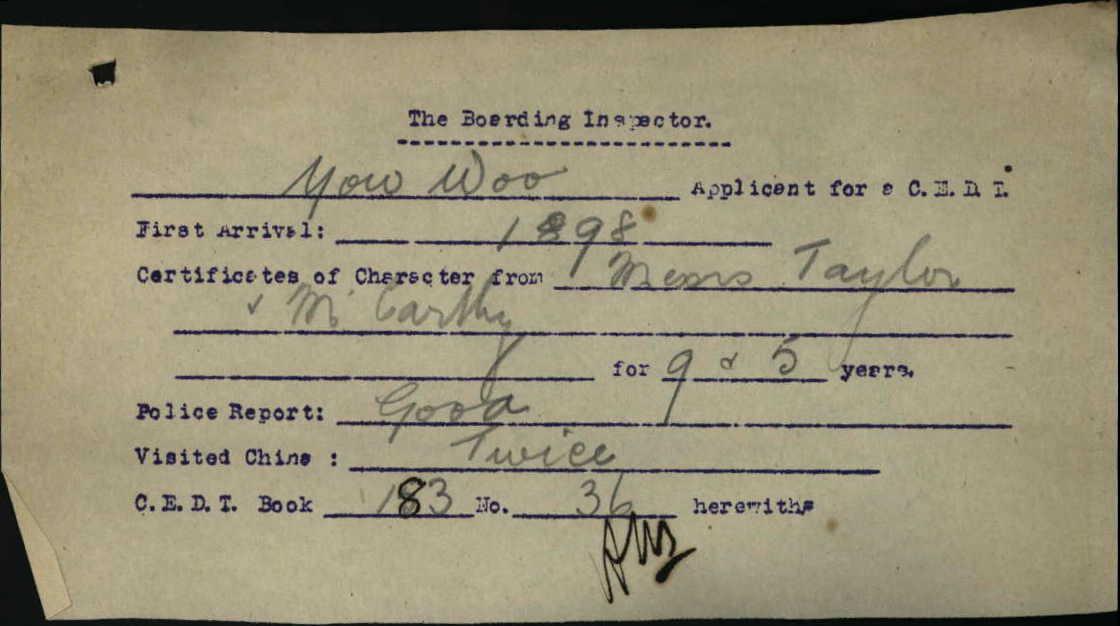 The Boarding Inspector.
Yow Woo Applicant for a C.E.D.T.
First Arrival: 1898
Certificates of Character from Messrs Taylor
& McCarthy
for 9 & 5 years.
Police Report: Good
Visited China : Twice
C.E.D.T. Book 183 No. 36 herewith